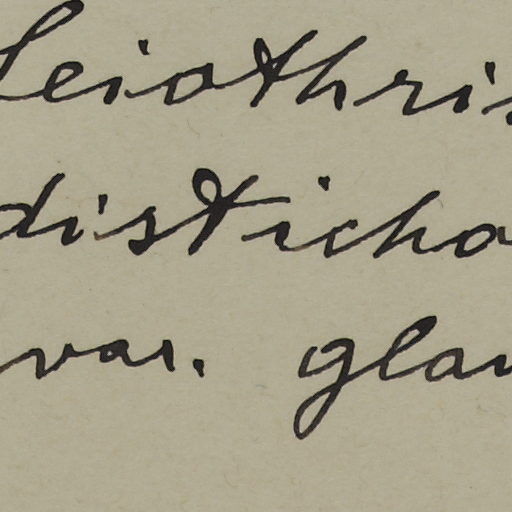 Leiothris
disticho
var. glau